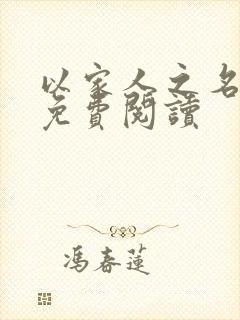 以家人之名
免費閱讀
馮春蓮